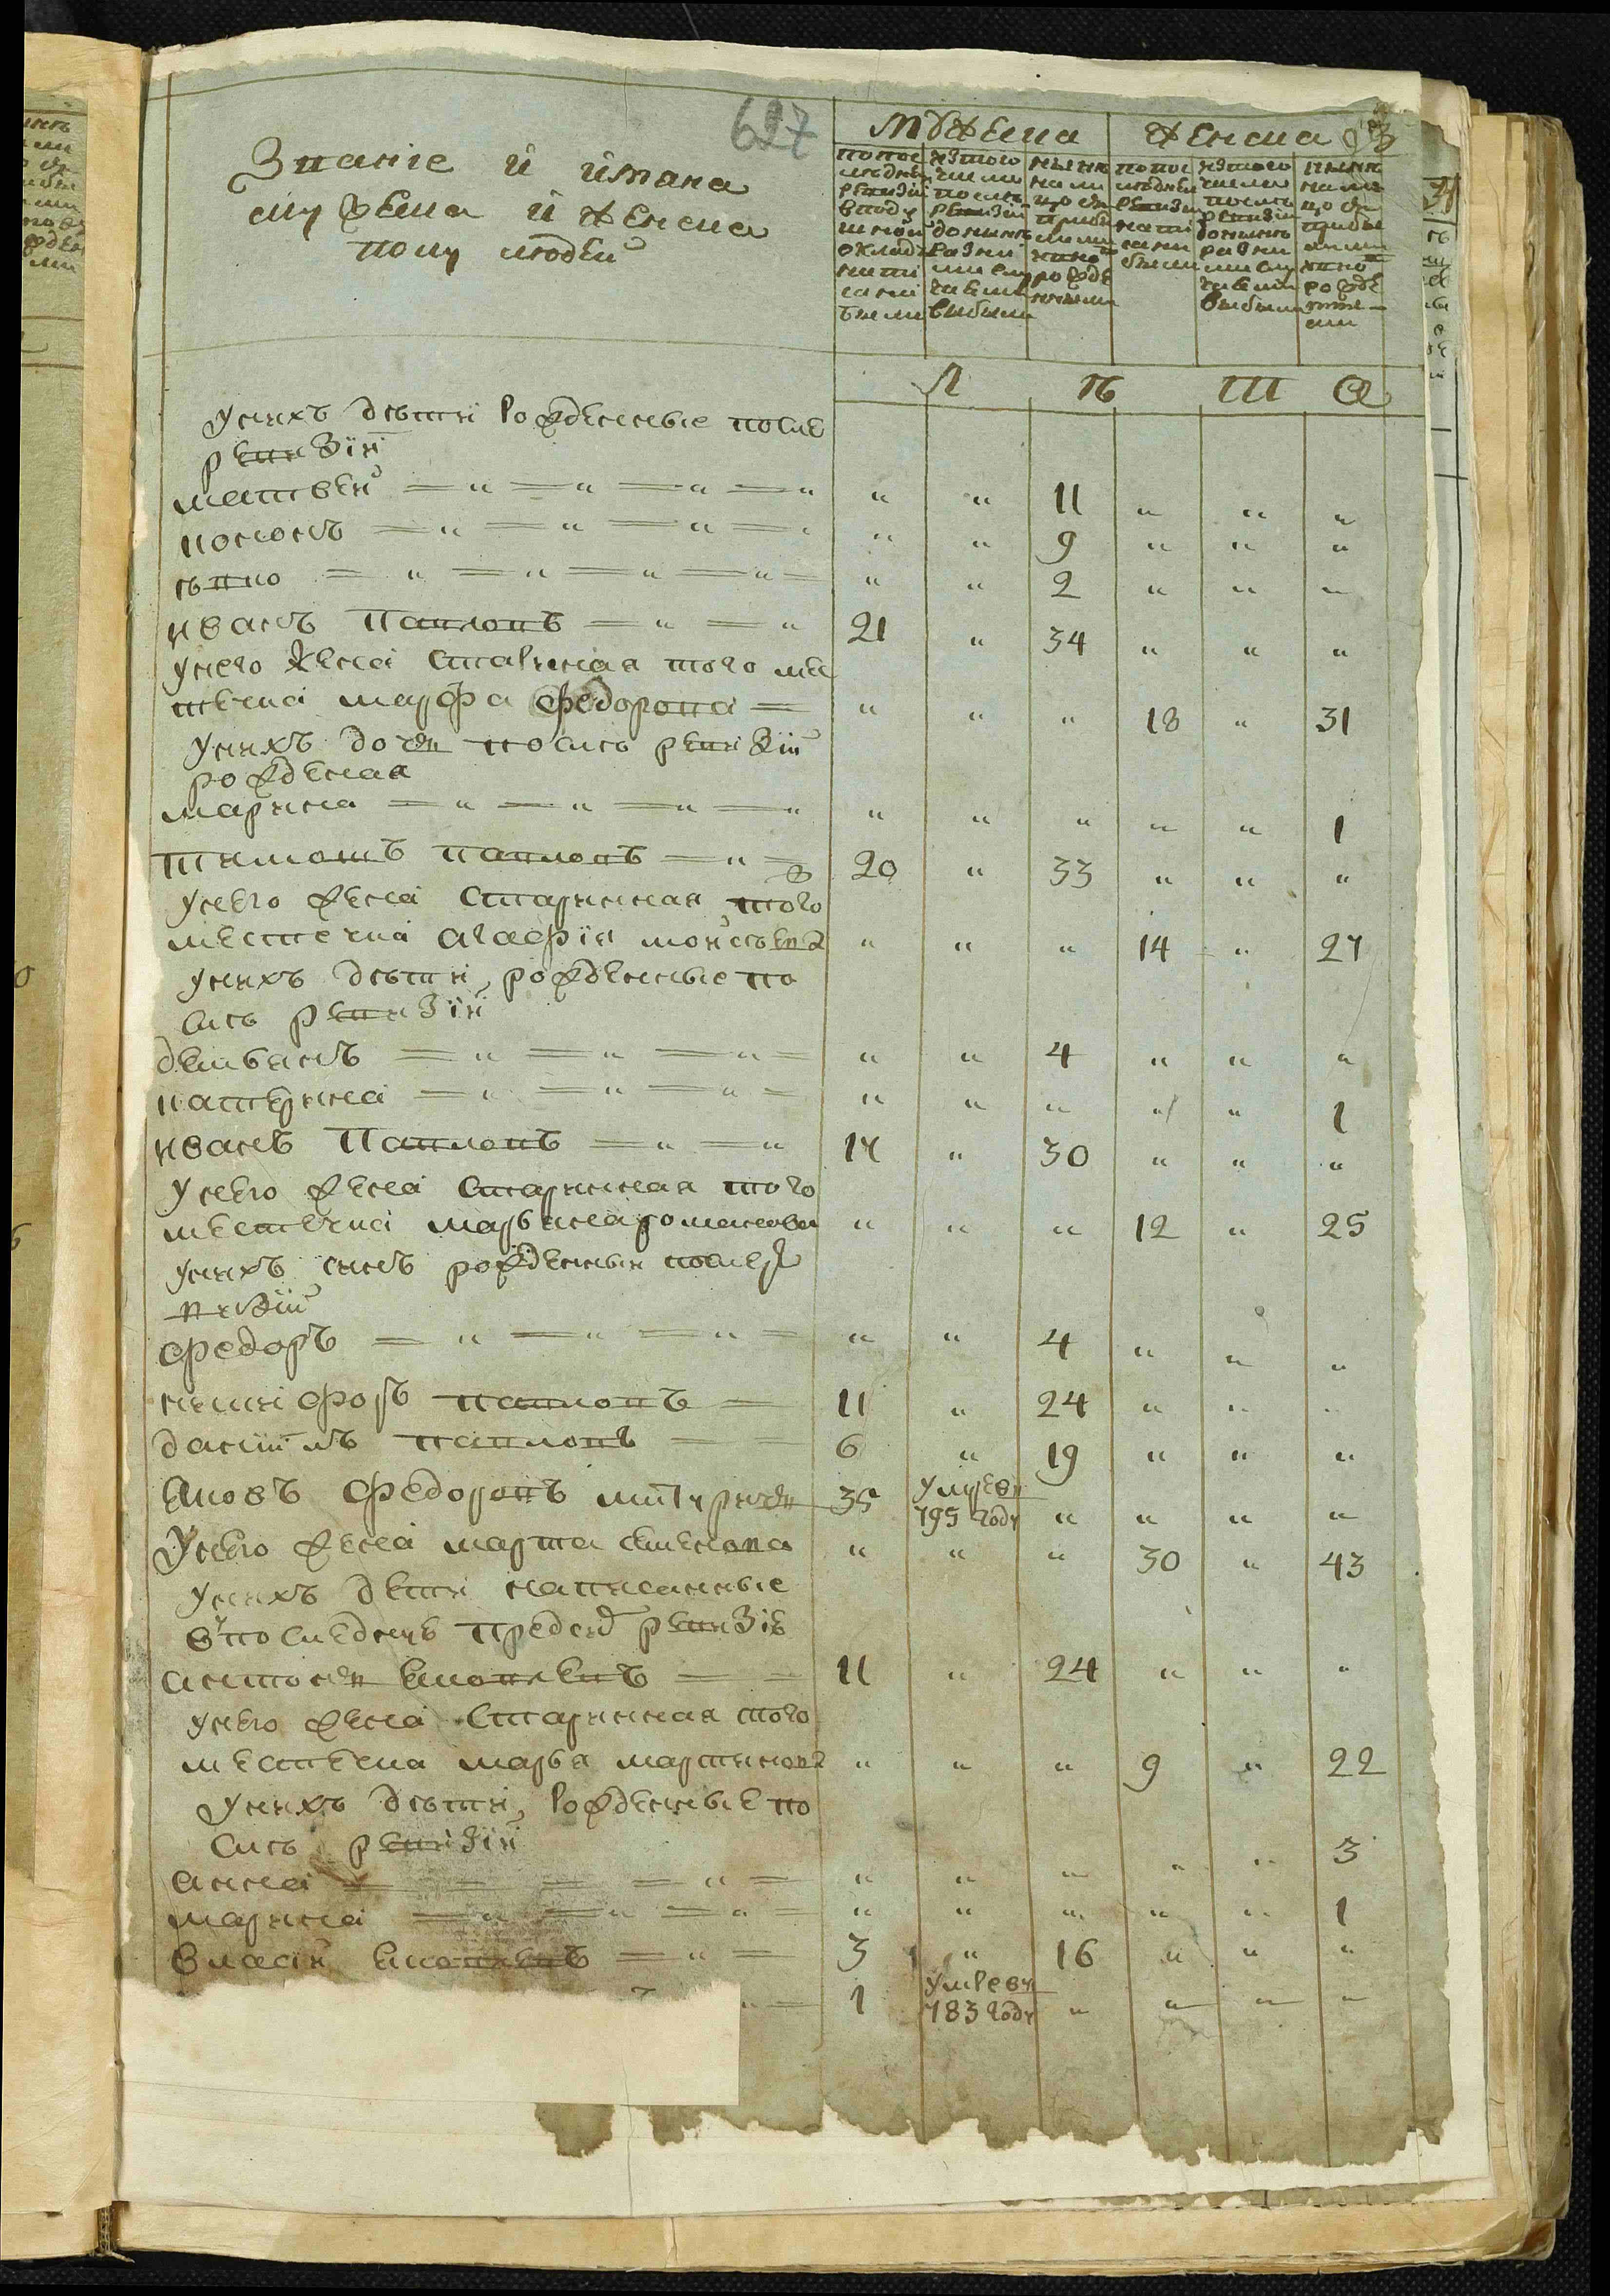 627
Звание и имена
мужеска и женска
полу людей
мужеска
женска
по пос
ледней
ревизии
в поду
шном
окладе
напи
саны
были
из того
числа
после
ревизии
доныне
разны
ми слу
чаями
выбыли
ныне
на ли
цо с
прибы
лыми
и вно
рожде
нными
по пос
ледней
ревизии
напи
саны
были
из того
числа
после
ревизии
доныне
разны
ми слу
чаями
выбыли
ныне
на ли
цо с
прибы
лыми
и вно
рожде
нны
ми
Л П Ш
у них дети рожденные после
ревизии
матвей " " 11 " " "
" " 9 " " "
" " 2 " " "
иван павлов 21 " 34 " " "
у него жена старинная того ме
стечка марфа федорова " " " 18 " 31
у них дочь после ревизии
рожденая
марина " " " " " 1
павлов 20 " 33 " " "
у него жена старинная того
местечка агафия " " " 14 " 27
у них дети рожденные по
сле ревизии
демьян " " 4 " " "
катерина " " " " " 1
иван павлов 17 " 30 " " "
у него жена старинная того
местечка марьяна романова " " " 12 " 25
у них сын рожденный после ре
визии
федор " " 4 " " "
никифор павлов 11 " 24 " " "
данило павлов 6 " 19 " " "
яков федоров 35 умре в 795 году " " " "
у него жена марфа семенова " " " 30 " 43
у них дети написанные
в последней пред сей ревизие
антон яковлев 11 " 24 " " "
у него жена старинная того
местечка марья мартинова " " " 9 " 22
у них дети рожденные по
сле ревизии
анна " " " " " 3
марина " " " " " 1
власий яковлев 3 " 16 " " "
1 умре в 783 году " " " "